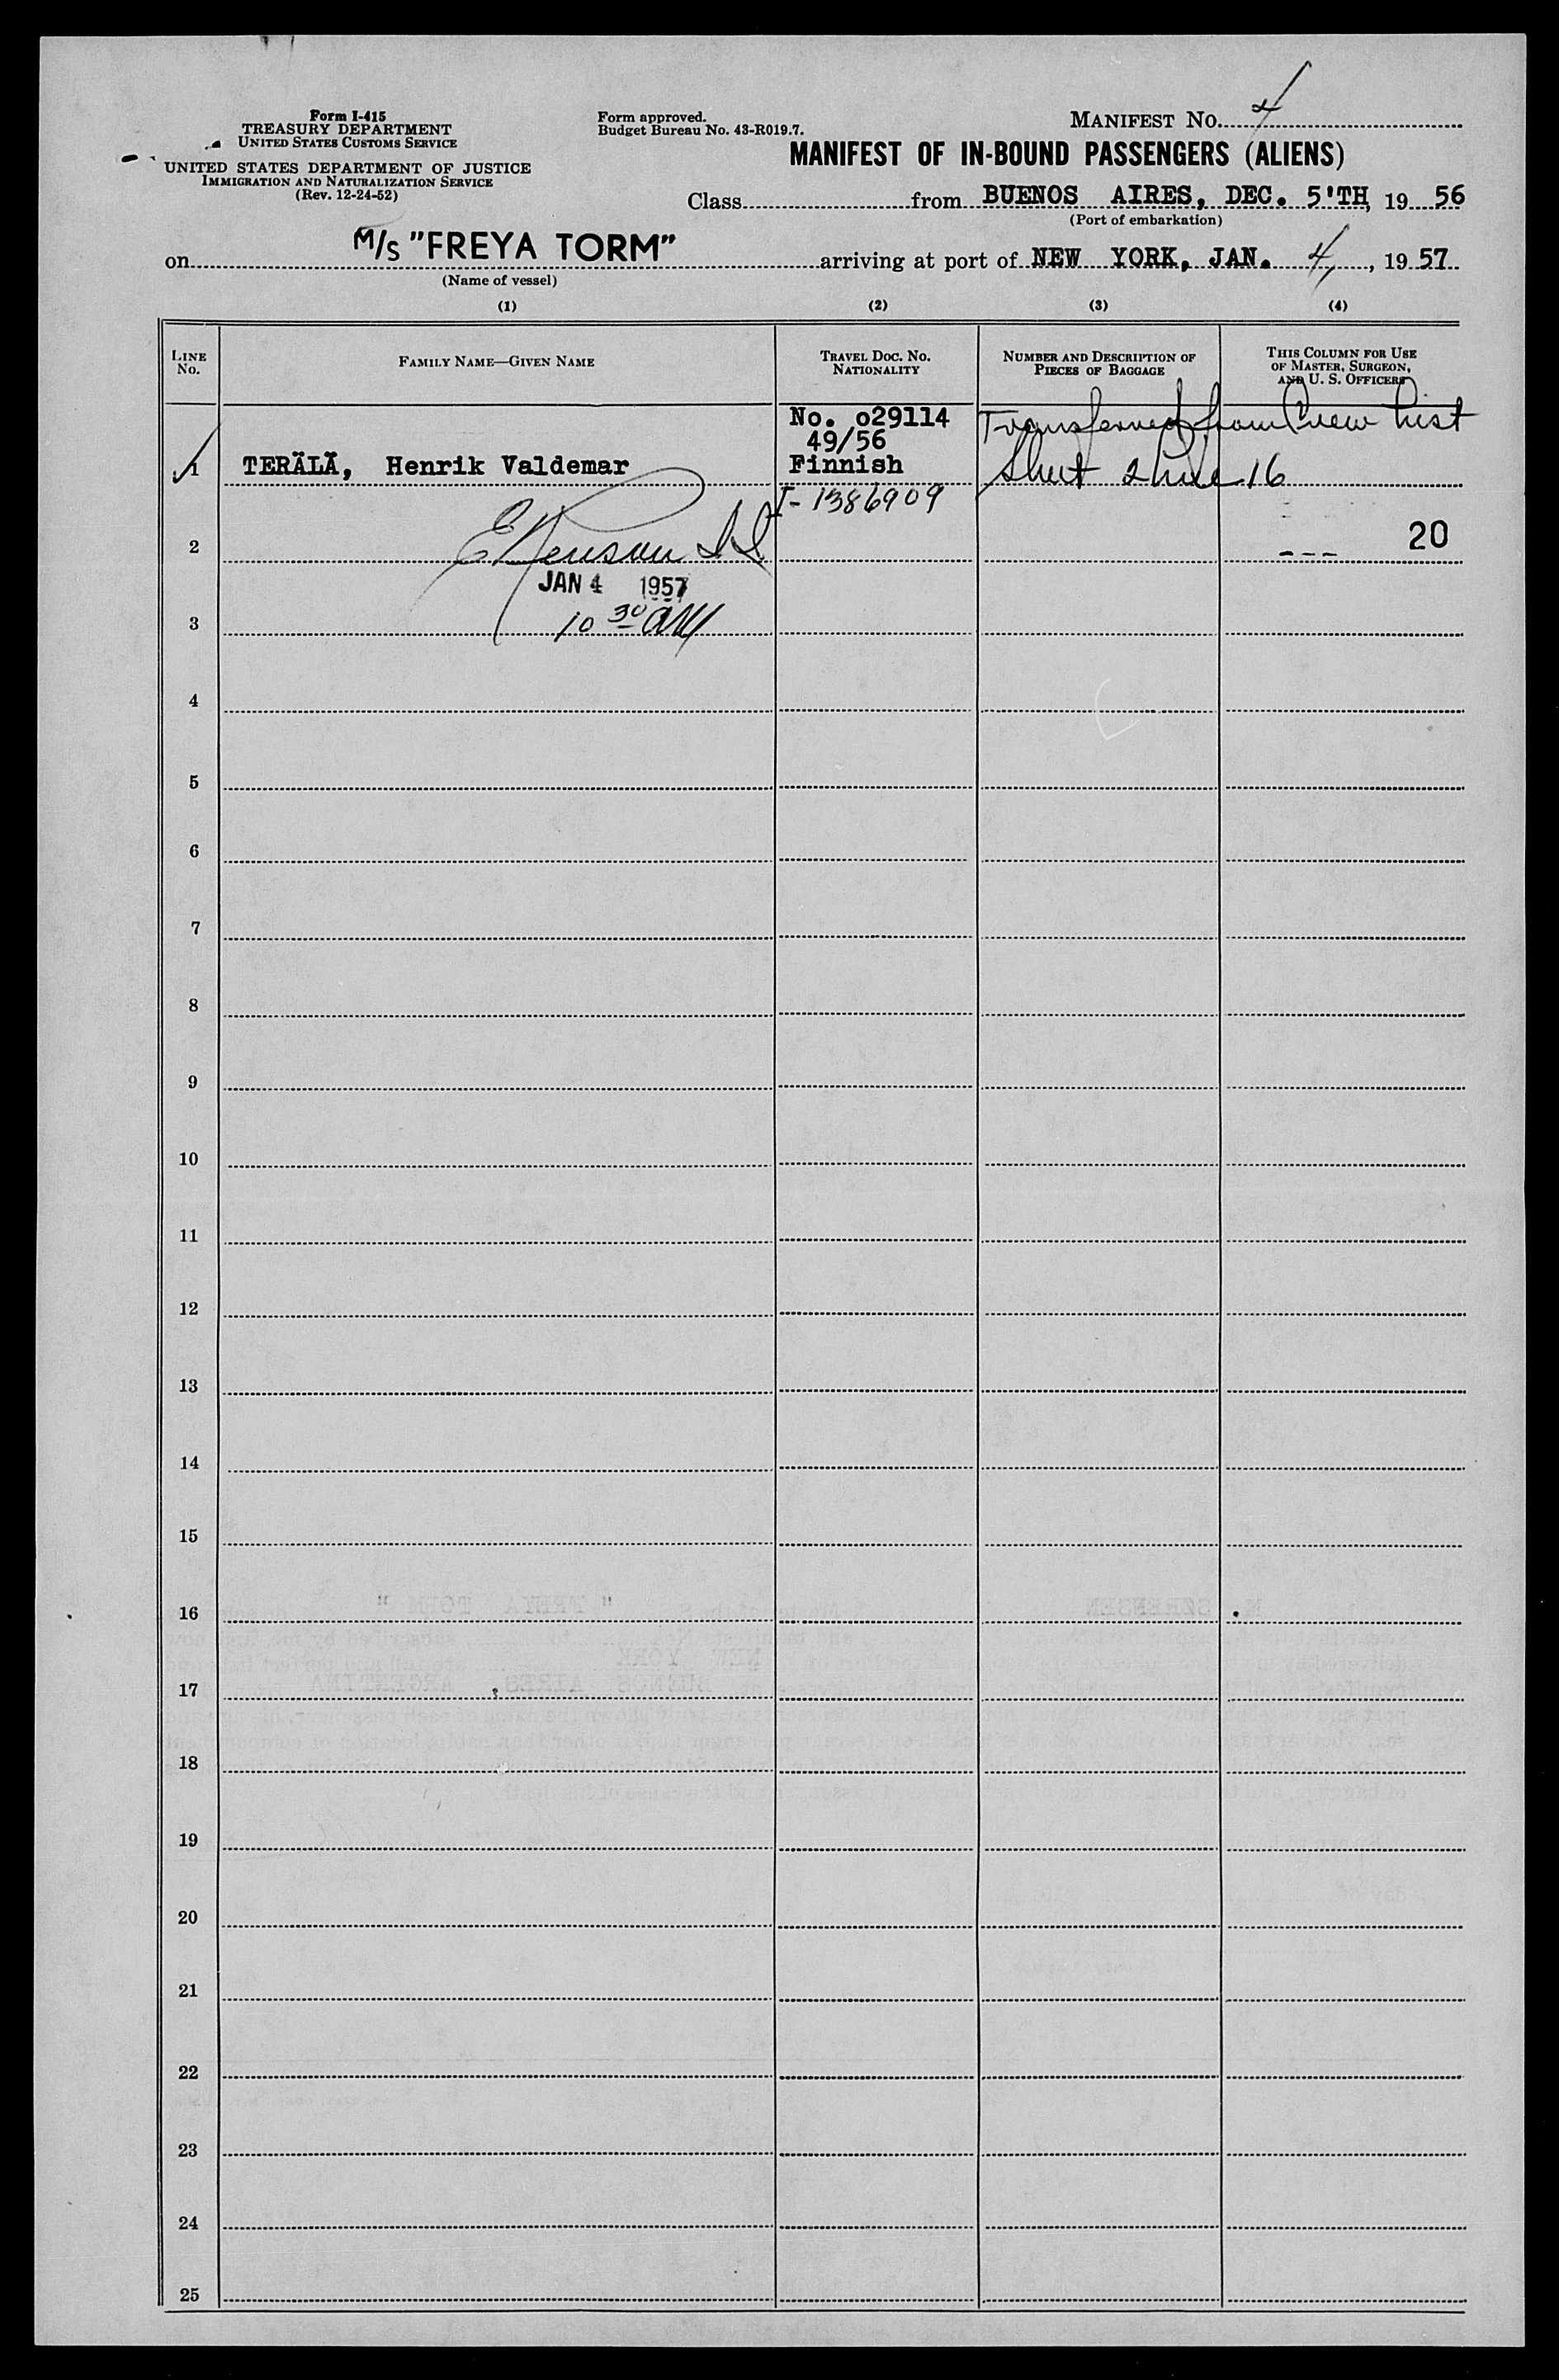 Form I-415
TREASURY DEPARTMENT
UNITED STATES CUSTOMS SERVICE
UNITED STATES DEPARTMENT OF JUSTICE
IMMIGRATION AND NATURALIZATION SERVICE
(Rev. 12-24-52)
Form approved.
Budget Bureau No. 43-R019.7.
MANIFEST NO. 4
MANIFEST OF IN-BOUND PASSENGERS (ALIENS)
Class from BUENOS AIRES, DEC. 5'TH, 19 56
(Port of embarkation)
on M/S "FREYA TORM" arriving at port of NEW YORK, JAN. 4, 19 57
(Name of vessel)
(1) (2) (3) (4)
LINE NO.
FAMILY NAME—GIVEN NAME
TRAVEL DOC. NO.
NATIONALITY
NUMBER AND DESCRIPTION OF
PIECES OF BAGGAGE
THIS COLUMN FOR USE
OF MASTER, SURGEON,
AND U. S. OFFICERS
No. o29114
49/56
Transferred from Crew List
1 TERÄLÄ, Henrik Valdemar Finnish
Sheet 2 Line 16
I-1386909
2
20
JAN 4 1957
3
10 30 AM
4
5
6
7
8
9
10
11
12
13
14
15
16
17
18
19
20
21
22
23
24
25